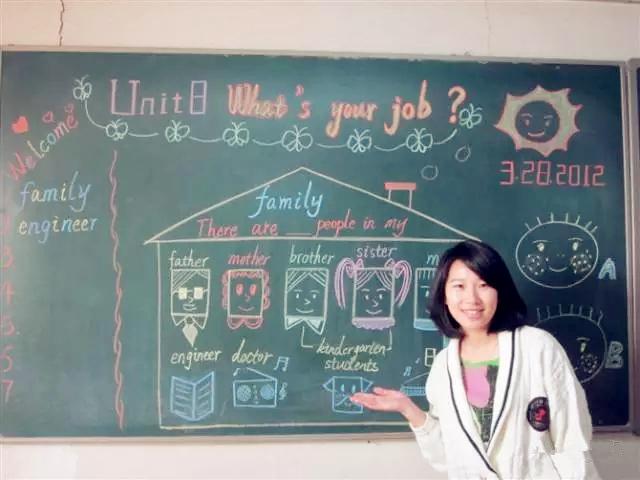 Unit 8 What's your job?
Welcome
3.28.2012
family
engineer
3
4
5.
7
family
There are ___ people in my
father mother brother sister m
engineer doctor kindergarten
students
A
B